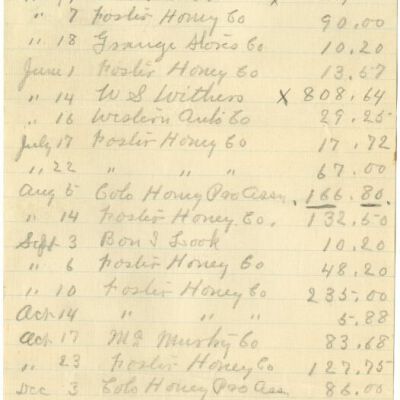 " 7 Foster Honey Co 90.00
" 18 Grange Stores Co 10.20
June 1 Foster Honey Co 13.57
" 14 W S Withers X 808.64
" 16 Western Auto Co 29.25
July 17 Foster Honey Co 17.72
" 22 " " " 67.00
Aug 5 Colo Honey Pro Assn. 166.80
" 14 Foster Honey Co. 132.50
Sept 3 Bon I Look 10.20
" 6 Foster Honey Co 48.20
" 10 Foster Honey Co 235.00
Oct 14 " " " 5.88
Oct 17 Mc Murtry Co 83.68
" 23 Foster Honey Co 127.75
Dec 3 Colo Honey Pro Ass. 86.00